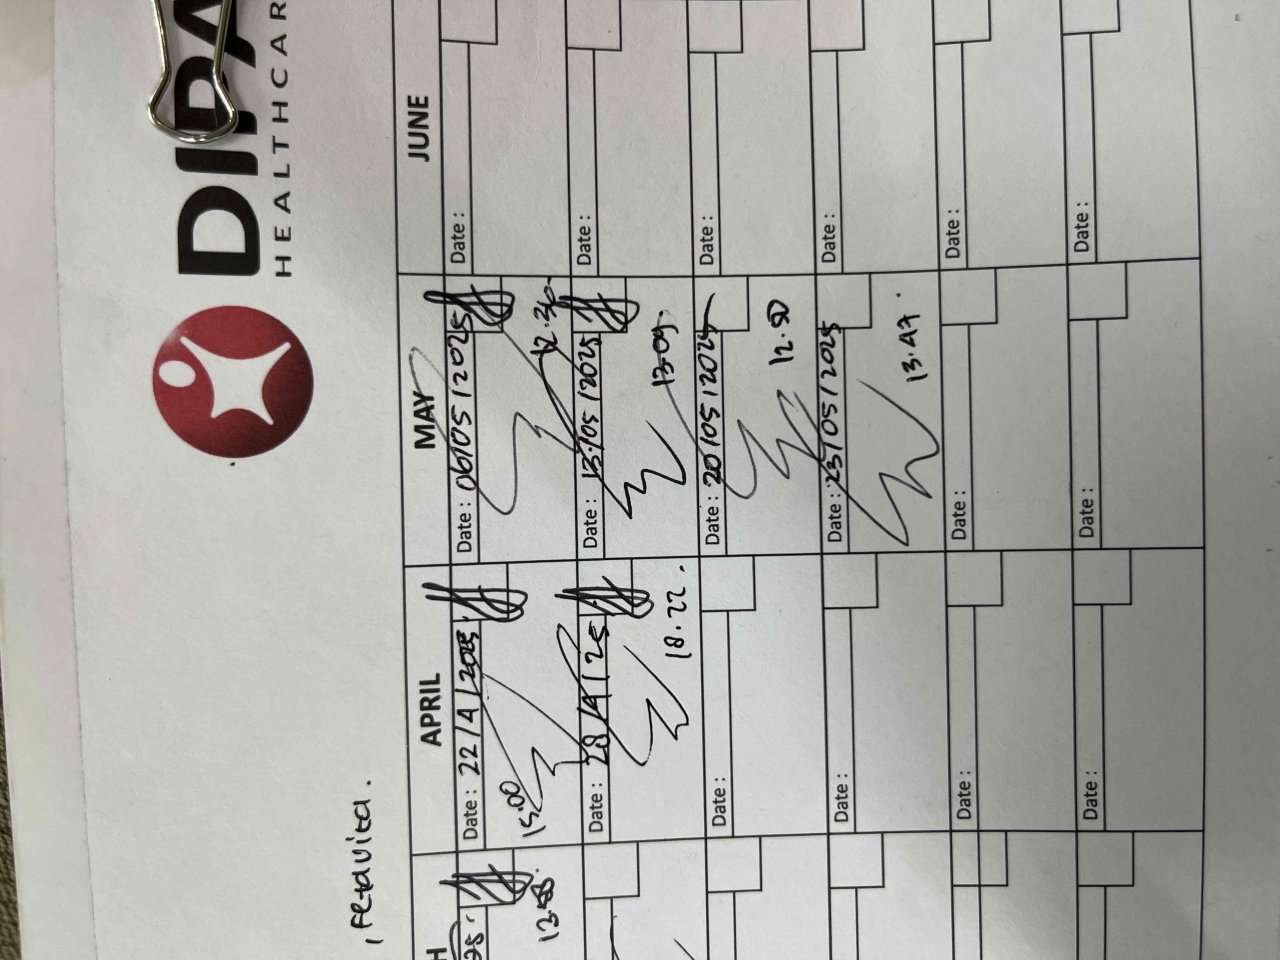 DIPA
HEALTHCAR
, Fetavita.
H APRIL MAY JUNE
25. Date : 22/4/2025 Date : 06/05/2025 Date :
15.00 12.30
Date : 28/4/25 Date : 13/05/2025 Date :
18.22. 13.09.
Date : Date : 20/05/2025 Date :
12.50
Date : Date : 23/05/2025 Date :
13.47.
Date : Date : Date :
Date : Date : Date :